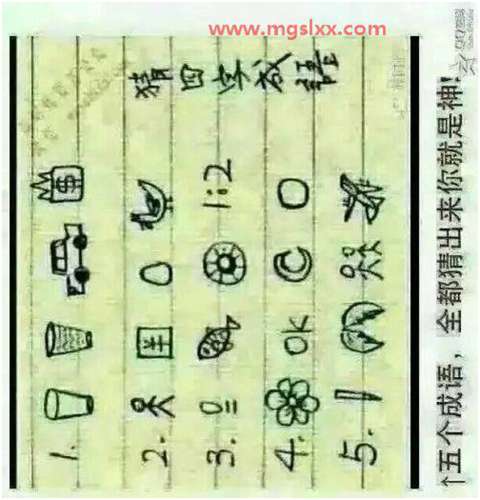 www.mgslxx.com
猜四字成语
1. $
2. 羊
3. 1:2
4. OK
5.
↑五个成语，全都猜出来你就是神!